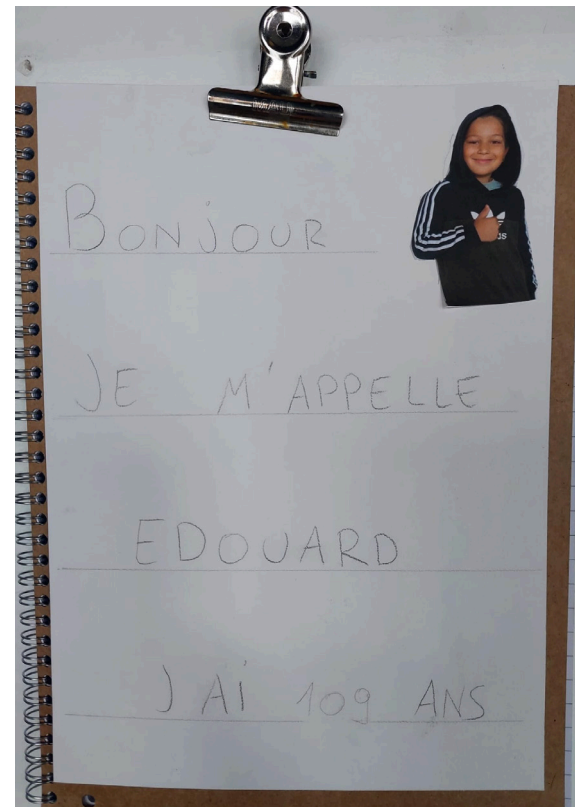 BONJOUR
JE M'APPELLE
EDOUARD
J AI 109 ANS